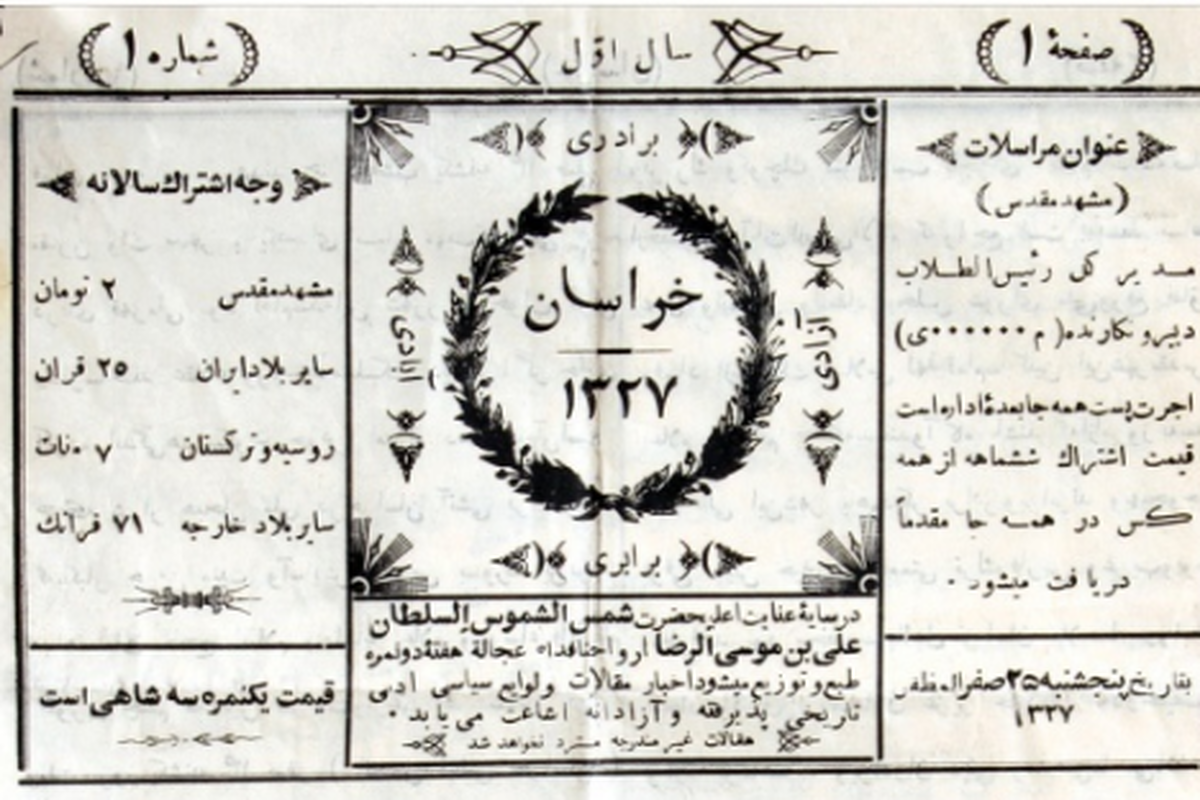 صفحهٔ ۱
سال اوّل
شماره ۱
عنوان مراسلات
(مشهد مقدس)
مدیر کل رئیس الطلاب
دبیر و نگارنده (م ۰۰۰۰۰۰ ی)
اجرت پست همه جا بعهدهٔ اداره است
قیمت اشتراك ششماهه از همه
کس در همه جا مقدماً
دریافت میشود ۰
بتاریخ پنجشنبه ۲۵ صفر المظفر
۱۳۲۷
برادری
آزادی
خراسان
۱۳۲۷
آبادی
برابری
در سایهٔ عنایت اعلیحضرت شمس الشموس السلطان
علی بن موسی الرضا ارواحنا فداه عجالة هفتهٔ دو نمره
طبع و توزیع میشود اخبار مقالات ولوایح سیاسی ادبی
تاریخی پذیرفته و آزادانه اشاعت می یابد ۰
مقالات غیر مندرجه مسترد نخواهد شد
وجه اشتراك سالانه
مشهد مقدس ۲ تومان
سایر بلاد ایران ۲۵ قران
روسیه و ترکستان ۷ منات
سایر بلاد خارجه ۷۱ فرانك
قیمت یکنمره سه شاهی است